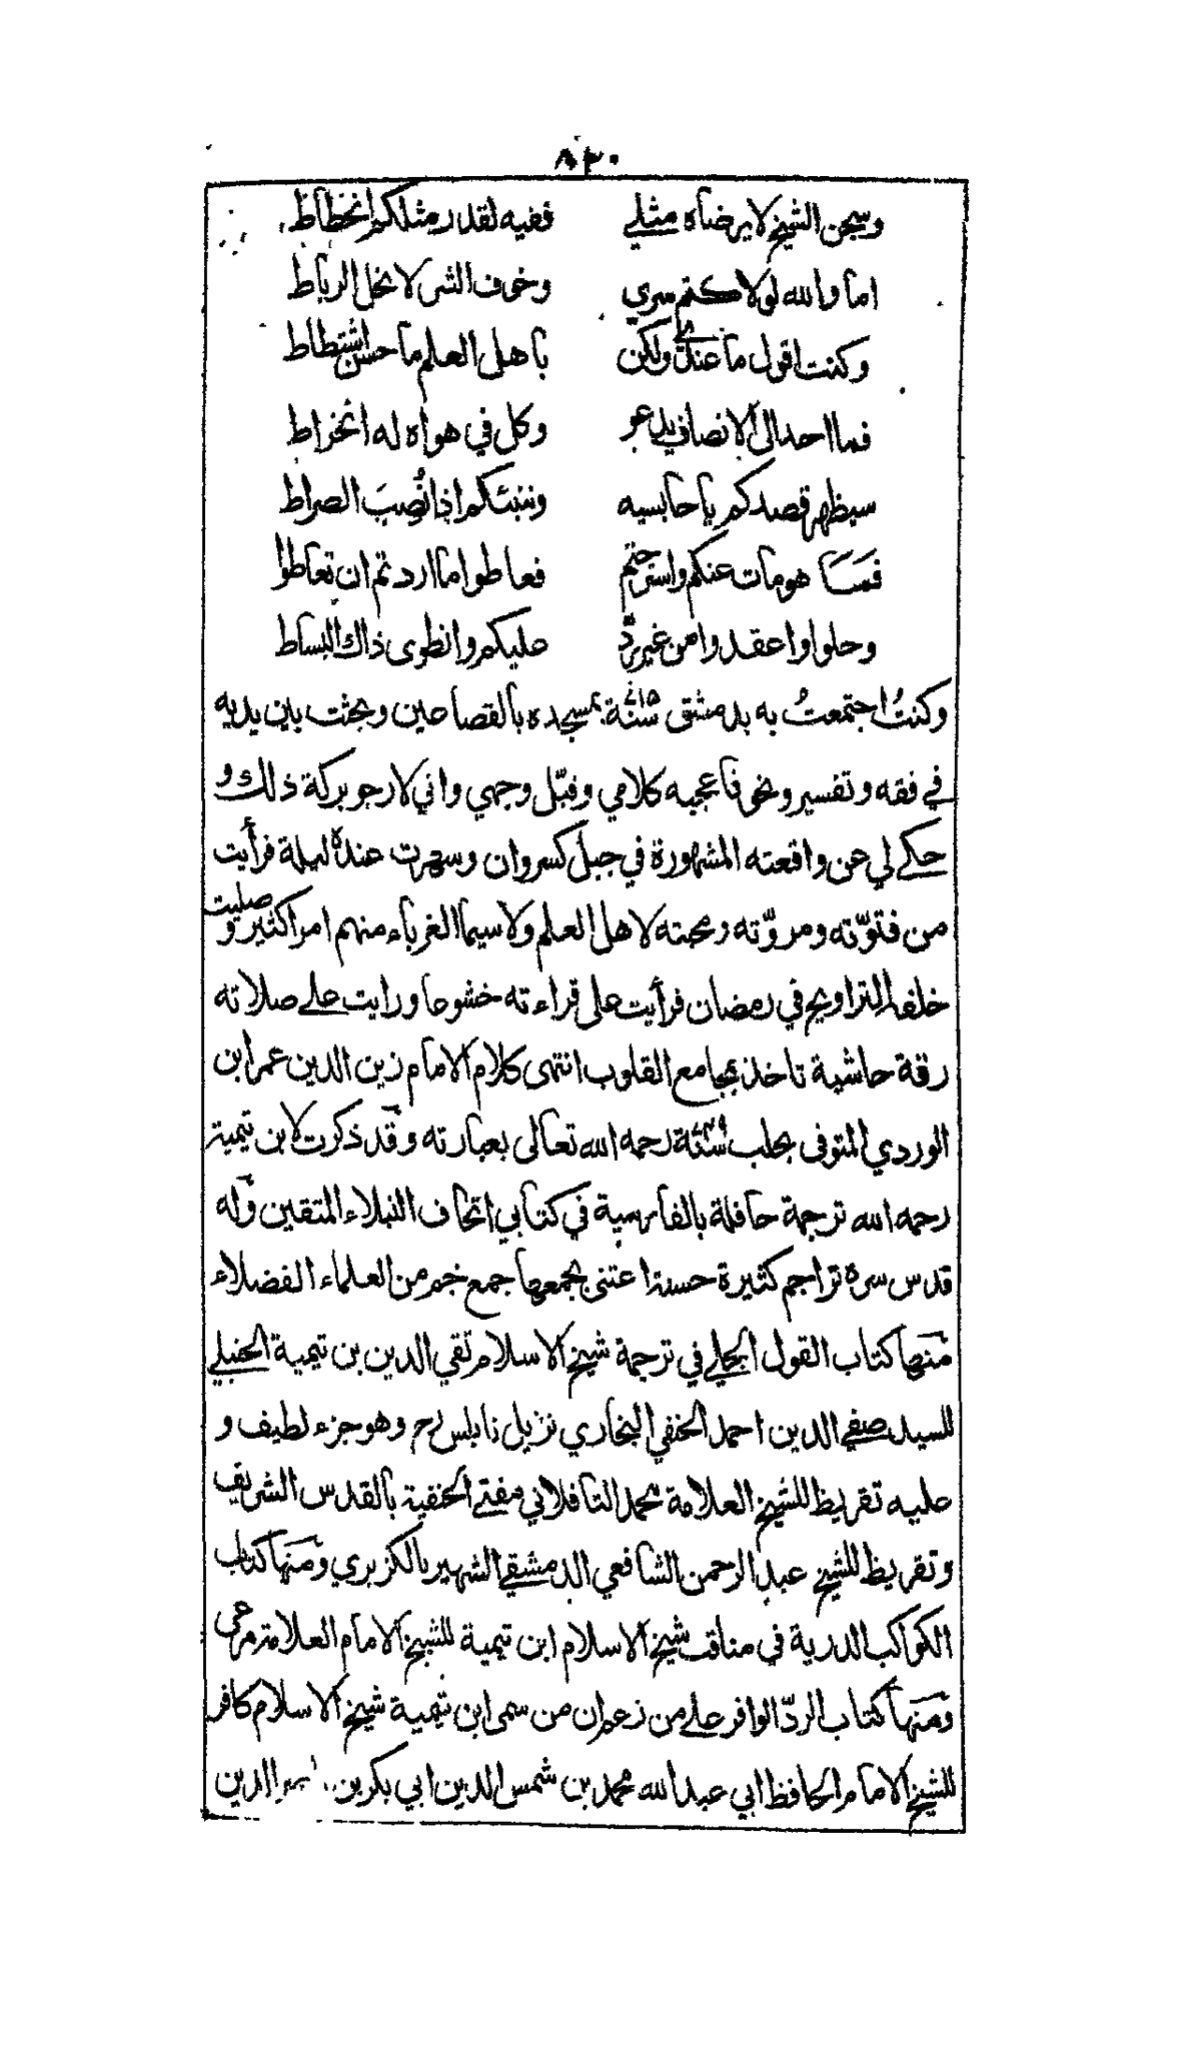 ٨٣٠
وسجن الشيخ لا يرضاه مثلي ففيه لقدر مثلكم انحطاط
اما والله لولا كتم سري وخوف الشر لانحل الرباط
وكنت اقول ما عندي ولكن باهل العلم ما حسن اشتطاط
فما احد الى الانصاف يدعو وكل في هواه له انخراط
سيظهر قصدكم يا حابسيه وننبئكم اذا نُصِبَ الصراط
فها هو مات عنكم واسترحتم فعاطوا ما اردتم ان تعاطوا
وحلوا واعقدوا من غير ردّ عليكم وانطوى ذاك البساط
وكنتُ اجتمعتُ به بدمشق سنة ٧١٥ بمسجده بالقصاعين وبحثت بين يديه
في فقه وتفسير ونحو فاعجبه كلامي وقبّل وجهي واني لارجو بركة ذلك و
حكى لي عن واقعته المشهورة في جبل كسروان وسهرت عنده ليلة فرأيت
من فتوّته ومروّته ومحبته لاهل العلم ولاسيما الغرباء منهم امرا كثيرا وصليت
خلفه التراويح في رمضان فرأيت على قراءته خشوعا ورايت على صلاته
رقة حاشية تاخذ بمجامع القلوب انتهى كلام الامام زين الدين عمر ابن
الوردي المتوفى بحلب سنة ٧٤٩ رحمه الله تعالى بعبارته وقد ذكرت لابن تيمية
رحمه الله ترجمة حافلة بالفارسية في كتابي اتحاف النبلاء المتقين وله
قدس سره تراجم كثيرة حسنة اعتنى بجمعها جمع جم من العلماء الفضلاء
منها كتاب القول الجلي في ترجمة شيخ الاسلام تقي الدين بن تيمية الحنبلي
للسيد صفي الدين احمد الحنفي البخاري نزيل نابلس رح وهو جزء لطيف و
عليه تقريظ للشيخ العلامة محمد التافلاني مفتي الحنفية بالقدس الشريف
وتقريظ للشيخ عبد الرحمن الشافعي الدمشقي الشهير بالكزبري ومنها كتاب
الكواكب الدرية في مناقب شيخ الاسلام ابن تيمية للشيخ الامام العلامة مرعي
ومنها كتاب الردّ الوافر على من زعم ان من سمى ابن تيمية شيخ الاسلام كافر
للشيخ الامام الحافظ ابي عبد الله محمد بن شمس الدين ابي بكر بن الدين